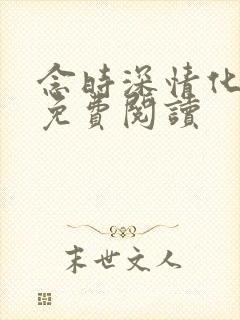 念時深情化
免費閱讀
末世文人